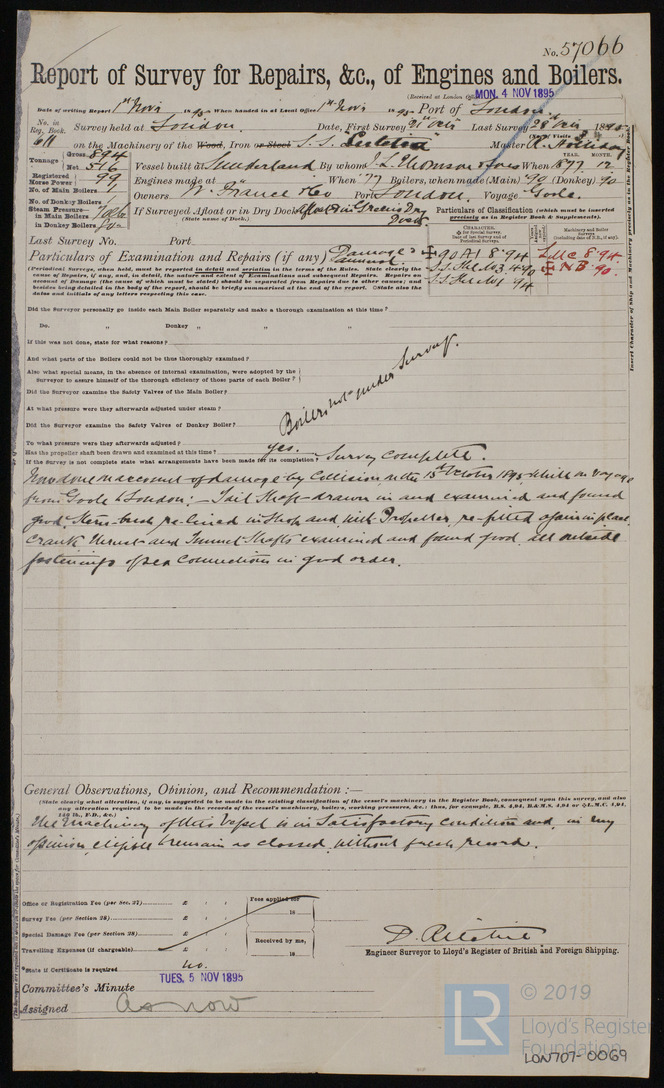 No. 57066
Report of Survey for Repairs, &c., of Engines and Boilers.
(Received at London Office MON. 4 NOV 1895
Date of writing Report 1st Novr 1895 When handed in at Local Office 1st Novr 1895 Port of London
No. in Reg. Book. Survey held at London. Date, First Survey 21st Octr Last Survey 28th Octr 1895
(No. of Visits 3)
611 on the Machinery of the Wood, Iron or Steel S.S. Master R.
Tonnage Gross 894 Net 546 Vessel built at Sunderland By whom J. L. Thomson & Sons When YEAR. 1877 MONTH. 12
Registered Horse Power 99 Engines made at " When '77 Boilers, when made (Main) '90 (Donkey) 90
No. of Main Boilers 1 Owners W. France & Co Port London. Voyage Goole.
No. of Donkey Boilers 1
Steam Pressure in Main Boilers
in Donkey Boilers
If Surveyed Afloat or in Dry Dock Afloat & in Greens Dry Dock
(State name of Dock.)
Particulars of Classification (which must be inserted precisely as in Register Book & Supplements).
CHARACTER.
✠ for Special Survey.
Date of last Survey and of Periodical Surveys.
Machinery and Boiler Surveys
(including date of N.B., if any).
Last Survey No. Port
Particulars of Examination and Repairs (if any) Damage &
✠ 90 A1 8.94 LMC 8.94
S.S. No3 4.90 ✠ NB 90.
S.S. No1 94
(Periodical Surveys, when held, must be reported in detail and seriatim in the terms of the Rules. State clearly the
cause of Repairs, if any, and, in detail, the nature and extent of Examinations and subsequent Repairs. Repairs on
account of Damage (the cause of which must be stated) should be separated from Repairs due to other causes; and
besides being detailed in the body of the report, should be briefly summarised at the end of the report. State also the
dates and initials of any letters respecting this case.
Insert Character of Ship and Machinery precisely as in the Register Book.
Did the Surveyor personally go inside each Main Boiler separately and make a thorough examination at this time?
Do. " Donkey " " " "
If this was not done, state for what reasons?
And what parts of the Boilers could not be thus thoroughly examined?
Also what special means, in the absence of internal examination, were adopted by the
Surveyor to assure himself of the thorough efficiency of those parts of each Boiler?
Did the Surveyor examine the Safety Valves of the Main Boiler?
At what pressure were they afterwards adjusted under steam?
Did the Surveyor examine the Safety Valves of Donkey Boiler?
Boilers not under Survey.
To what pressure were they afterwards adjusted?
Has the propeller shaft been drawn and examined at this time? yes.
If the Survey is not complete state what arrangements have been made for its completion? Survey complete.
Now done on account of damage by Collision on the 15th October 1895 whilst on voyage
from Goole to London:— Tail Shaft drawn in and examined and found
good, Stern-bush re-lined in shop and with Propeller, re-fitted again in place.
Crank Thrust and Tunnel Shafts examined and found good, all outside
fastenings of sea connections in good order.
General Observations, Opinion, and Recommendation:—
(State clearly what alteration, if any, is suggested to be made in the existing classification of the vessel's machinery in the Register Book, consequent upon this survey, and also
any alteration required to be made in the records of the vessel's machinery, boilers, working pressures, &c.; thus, for example, B.S. 4,94, B.&M.S. 4,94 or ✠L.M.C. 4,94,
140 lb., F.D., &c.)
The Machinery of this Vessel is in Satisfactory condition and, in my
opinion, eligible to remain as classed, without fresh record.
Office or Registration Fee (per Sec. 27) £ : :
Survey Fee (per Section 28) £ : :
Special Damage Fee (per Section 28) £ : :
Travelling Expenses (if chargeable) £ : :
Fees applied for
18
Received by me,
18
*State if Certificate is required no.
D. Ritchie
Engineer Surveyor to Lloyd's Register of British and Foreign Shipping.
Committee's Minute TUES. 5 NOV 1895
Assigned as now
LR © 2019
Lloyd's Register
Foundation
LON707-0069